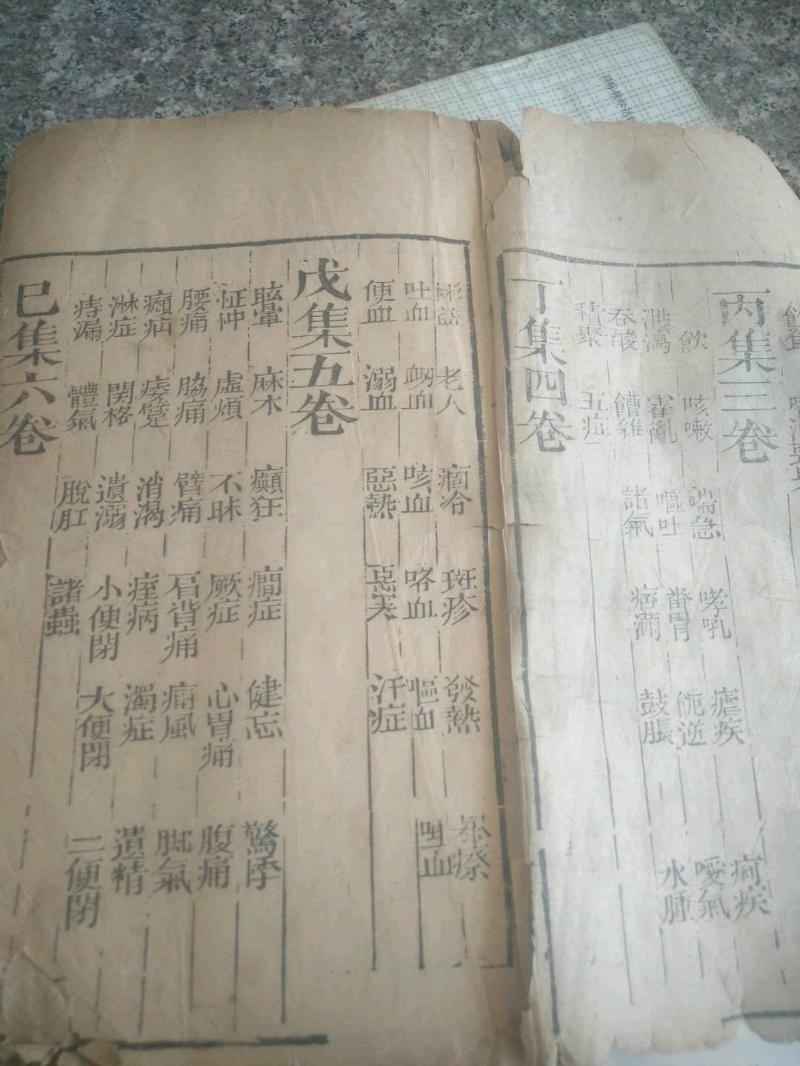 丙集三卷
飲 咳嗽 喘急 哮吼 瘧疾 痢疾
泄瀉 霍亂 嘔吐 番胃 呃逆 噯氣
吞酸 嘈雜 諸氣 痞滿 鼓脹 水腫
積聚 五疸
丁集四卷
老人 痼冷 斑疹 發熱
吐血 衄血 咳血 咯血 嘔血 血
便血 溺血 惡熱 惡寒 汗症
戊集五卷
眩暈 麻木 癲狂 癇症 健忘 驚悸
怔忡 虛煩 不眛 厥症 心胃痛 腹痛
腰痛 脇痛 臂痛 肩背痛 痛風 脚氣
痿躄 消渴 痓病 濁症 遺精
淋症 関格 遺溺 小便閉 大便閉 二便閉
痔漏 體氣 脫肛 諸蟲
巳集六卷